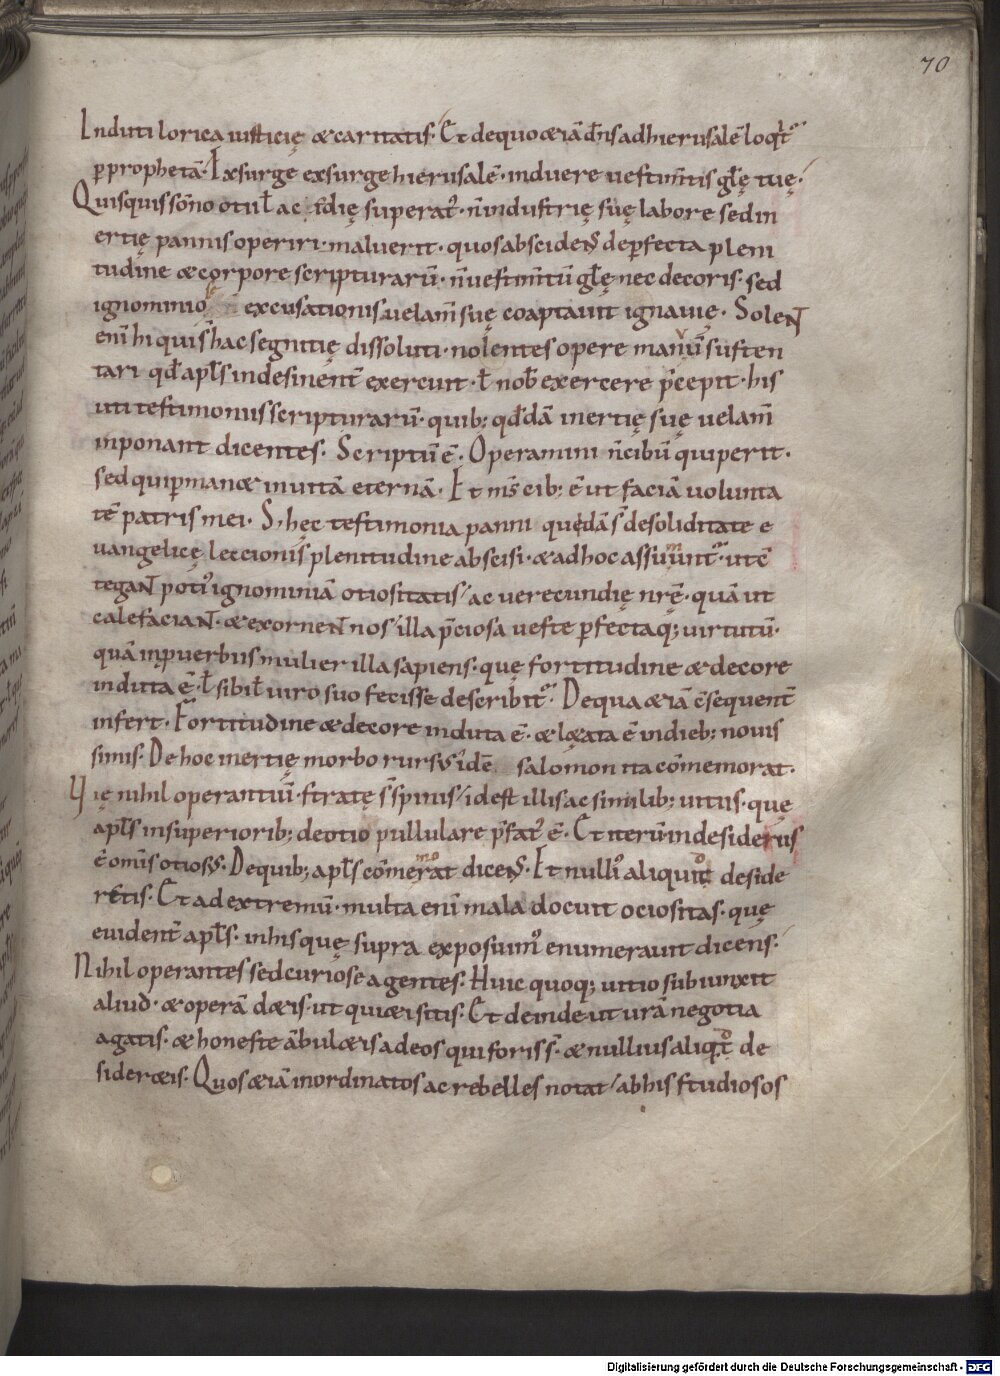 70
Induti lorica iusticię & caritatis. Et dequo &iā dn̄s ad hierusalē loqt̄ᷣ
ꝑ prophetā. Exsurge exsurge hierusalē. induere uestim̄tis gl̄ę tuę.
Quisquis sōno otii ł ac̄idię superat᾿. n̄ industrię suę labore sed in
ertię pannis operiri. maluerit. quos abscidens deperfecta pleni
tudine & corpore scripturarū. n̄ uestim̄tū gl̄ę nec decoris. sed
ignominiosę excusationis uelam̄ suę coaptauit ignauię. Solent
enī hi qui s̄ hac segnitię dissoluti. nolentes opere manuū susten
tari qđ apl̄s indesinent̄ exercuit. ł nob̄ exercere p̄cepit. his
uti testimoniis scripturarū. quib; qđdā inertię suę uelam̄
inponant dicentes. Scriptū ē. Operamini n̄ cibū qui perit.
sed qui ꝑman& in uitā eternā. Et m̄s cib; ē ut faciā uolunta
tē patris mei. S; hęc testimonia panni quędā s̄ de soliditate e
uangelicę leccionis plenitudine abscisi. & ad hoc assuuntᷣ. ut ē
tegant poti᾿ ignominiā otiositatis / ac uerecundię nr̄ę. quā ut
calefaciant. & exornent nos / illa p̄ciosa ueste ꝑfectaq; uirtutū.
quā in ꝓuerbiis mulier illa sapiens. quę fortitudine & decore
induta ē. ł sibi ł uiro suo fecisse describitᷣ. De qua &iā c̄sequent̄
infert. Fortitudine & decore induta ē. & l&ata ē in dieb; nouis
simis. De hoc inertię morbo rursus idē salomon ita cōmemorat.
Vię nihil operantiū. stratę s̄ spinis / id est illis ac similib; uitiis. quę
apl̄s in superiorib; de otio pullulare p̄fat᾿ ē. Et iterū in desideriis
ē omīs otiosus. De quib; apl̄s cōmemorat dicens. Et nulli᾿ aliquid deside
r&is. Et ad extremū. multa enī mala docuit ociositas. quę
euident̄ apl̄s. in his quę supra exposuim᾿ enumerauit dicens.
Nihil operantes sed curiose agentes. Huic quoq; uitio subiunxit
aliud. & operā d&is. ut qui&i sitis. Et deinde ut urā negotia
agatis. & honeste ābul&is ad eos qui foris s̄. & nullius aliqd de
sider&is. Quos &iā inordinatos ac rebelles notat / ab his studiosos
Digitalisierung gefördert durch die Deutsche Forschungsgemeinschaft - DFG